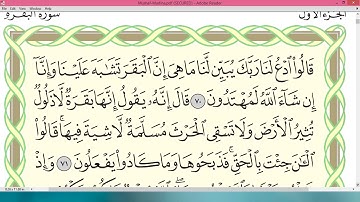 الجزء الأول سورة البقرة
قَالُوا۟ ٱدْعُ لَنَا رَبَّكَ يُبَيِّن لَّنَا مَا هِىَ إِنَّ ٱلْبَقَرَ تَشَـٰبَهَ عَلَيْنَا وَإِنَّآ
إِن شَآءَ ٱللَّهُ لَمُهْتَدُونَ ٧٠ قَالَ إِنَّهُۥ يَقُولُ إِنَّهَا بَقَرَةٌ لَّا ذَلُولٌ
تُثِيرُ ٱلْأَرْضَ وَلَا تَسْقِى ٱلْحَرْثَ مُسَلَّمَةٌ لَّا شِيَةَ فِيهَا ۚ قَالُوا۟
ٱلْـَٔـٰنَ جِئْتَ بِٱلْحَقِّ ۚ فَذَبَحُوهَا وَمَا كَادُوا۟ يَفْعَلُونَ ٧١ وَإِذْ